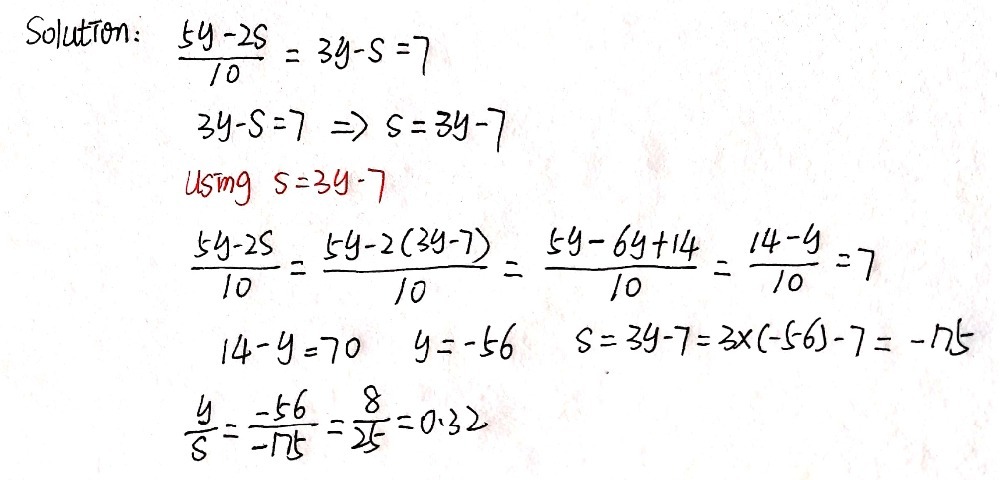 Solution: (5y-2s)/10 = 3y-s=7
3y-s=7 => s=3y-7
Using s=3y-7
(5y-2s)/10 = (5y-2(3y-7))/10 = (5y-6y+14)/10 = (14-y)/10 = 7
14-y=70 y=-56 s=3y-7=3×(-56)-7=-175
y/s = -56/-175 = 8/25 = 0.32